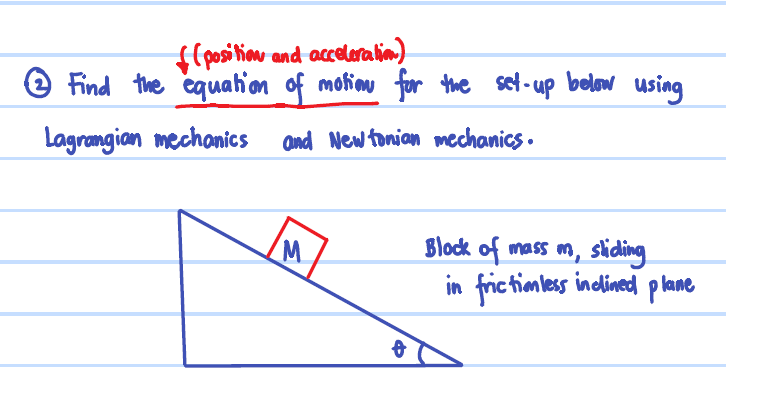 (position and acceleration)
② Find the equation of motion for the set-up below using
Lagrangian mechanics and Newtonian mechanics.
M
Block of mass m, sliding
in frictionless inclined plane
θ